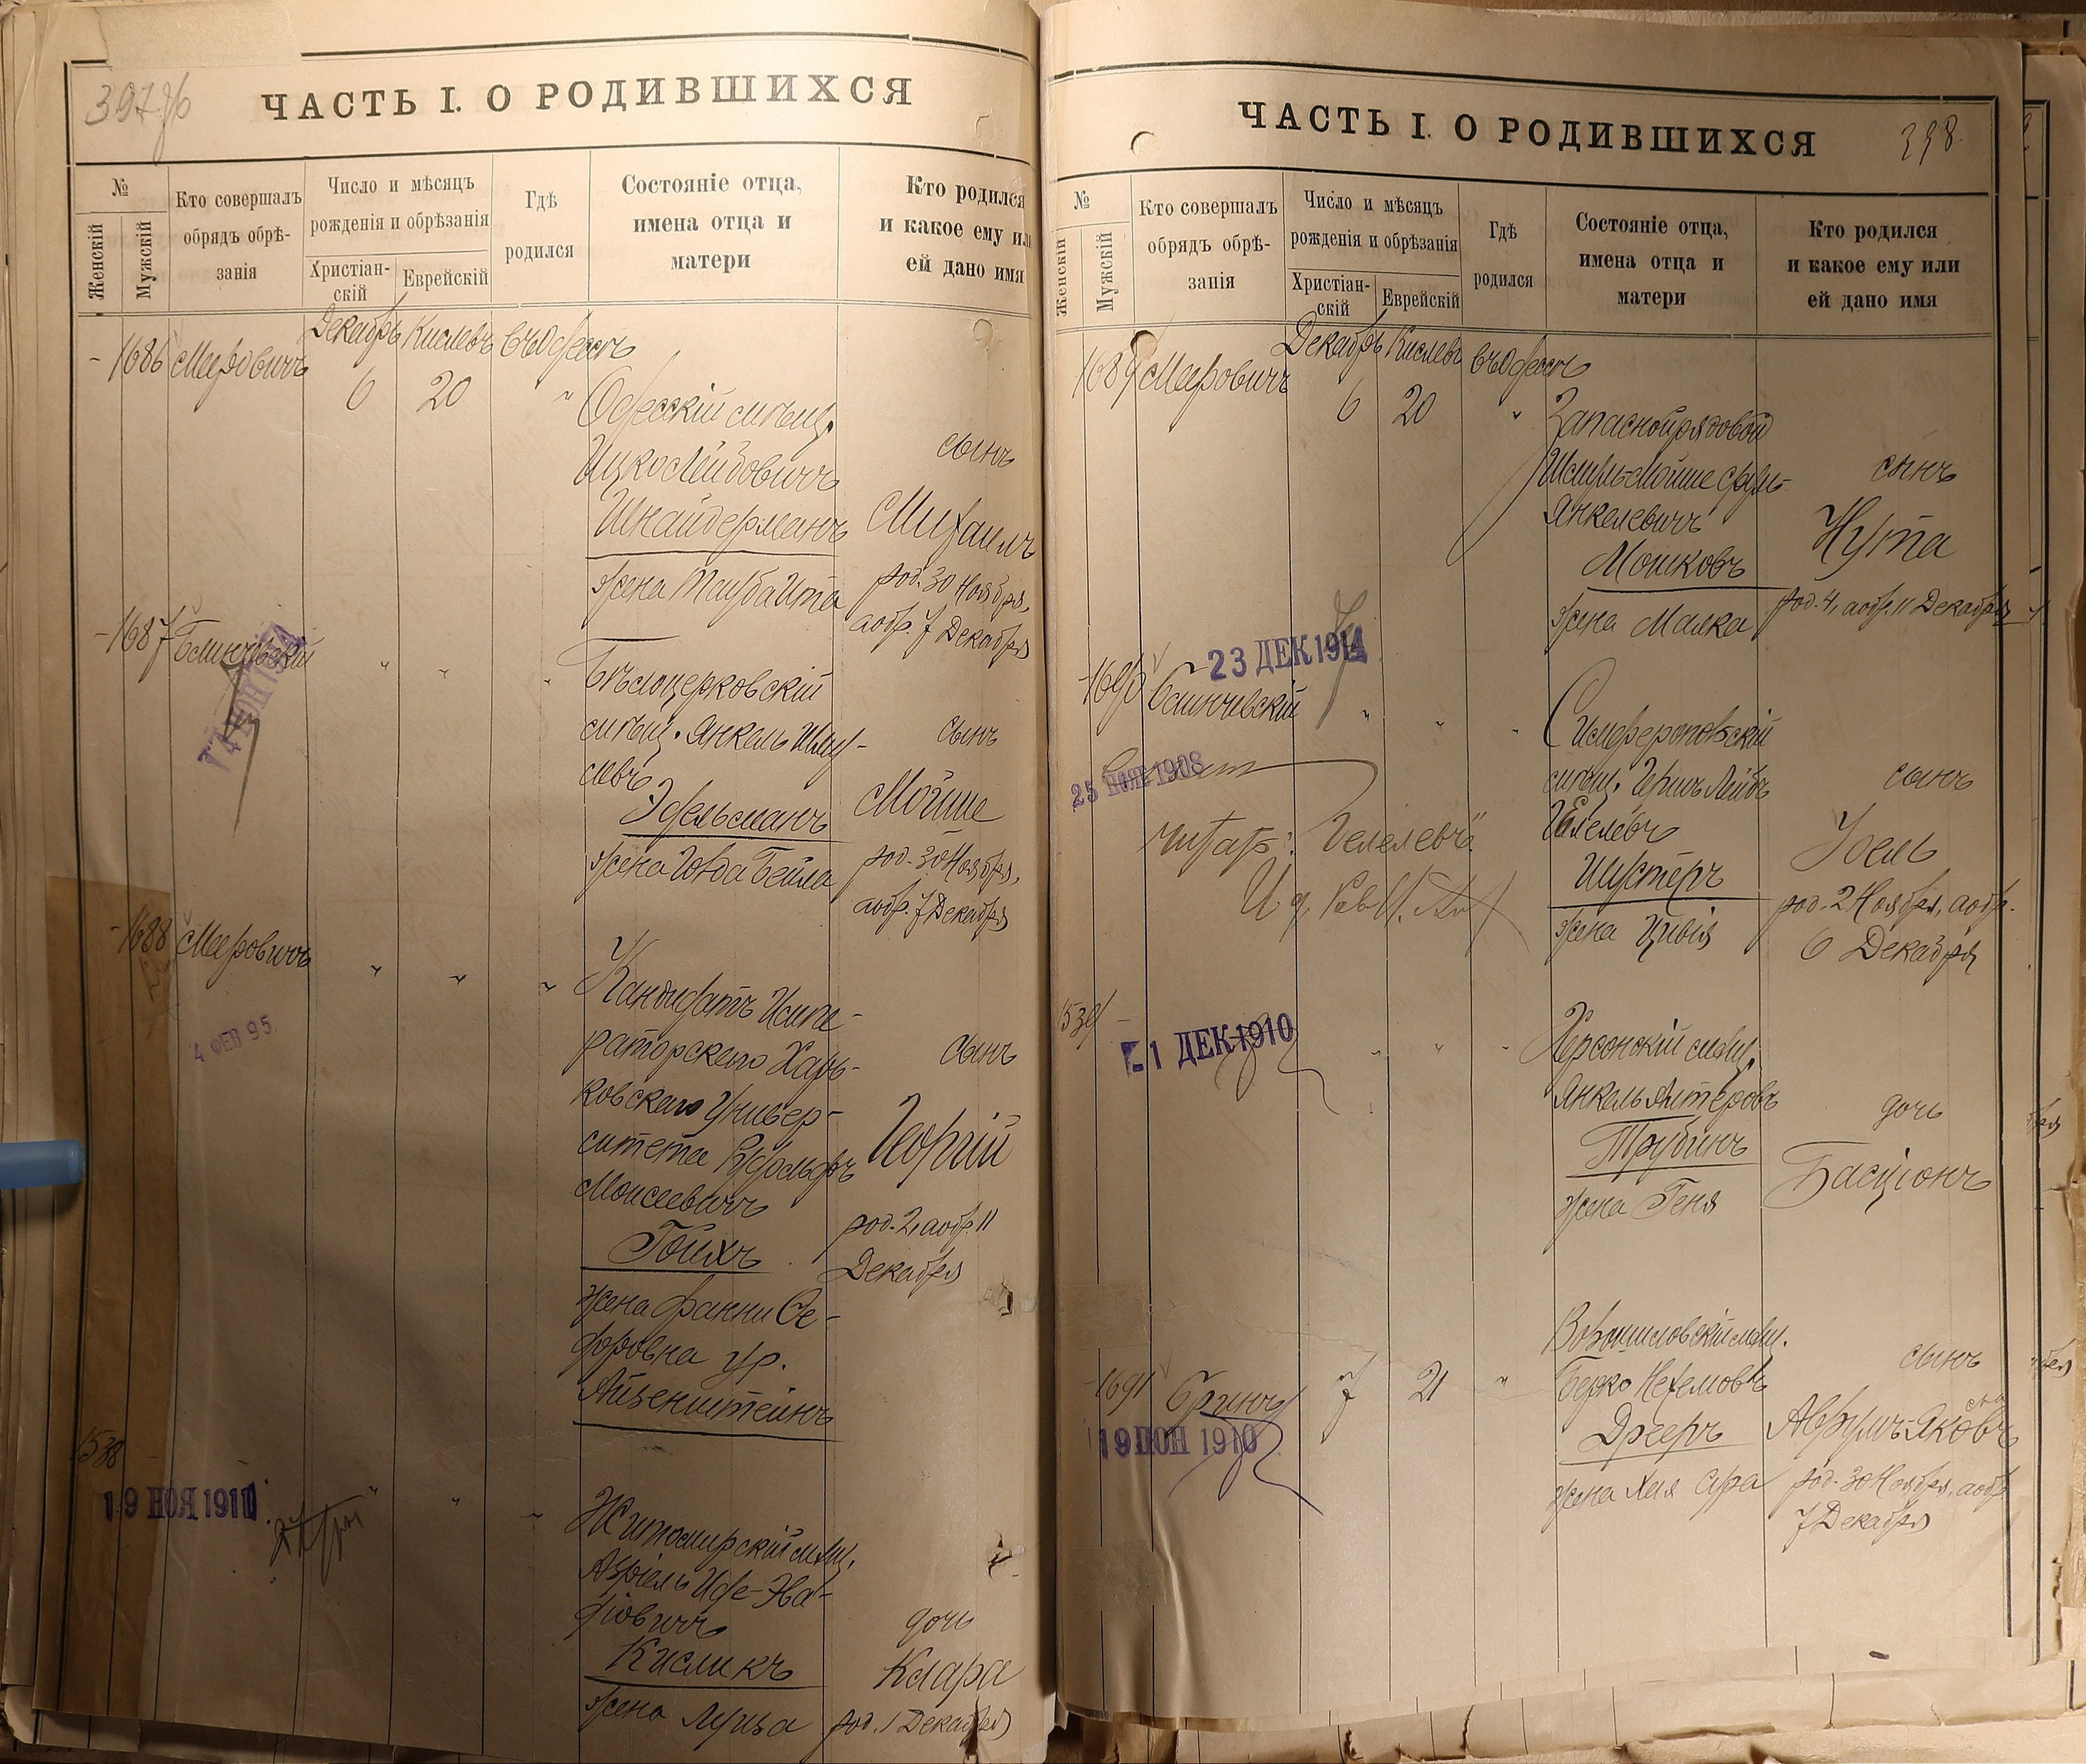 397
ЧАСТЬ I. О РОДИВШИХСЯ
№
Женскій
Мужскій
Кто совершалъ
обрядъ обрѣ-
занія
Число и мѣсяцъ
рожденія и обрѣзанія
Христіан-
скій
Еврейскій
Гдѣ
родился
Состояніе отца,
имена отца и
матери
Кто родился
и какое ему или
ей дано имя
Декабрь Кислевъ въ Одессѣ
1686 Меровичъ 6 20 "
Одесскій мѣщ.
Ицко Лейбовичъ
Шнайдерманъ
жена Тауба Ита
сынъ
Михаилъ
род. 30 Ноября,
а обр. 7 Декабря
1687 " " "
Бѣлоцерковскій
мѣщ. Янкель Шму-
левъ
Эдельманъ
жена Бейла
сынъ
Мойше
род. 30 Ноября,
а обр. 7 Декабря
1688 Меровичъ " " "
4 ФЕВ 95.
Кандидатъ Импе-
раторскаго Харь-
ковскаго Универ-
ситета Рудольфъ
Моисеевичъ
жена Фанни Се-
ур.
Айзенштейнъ
сынъ
Георгій
род. 2, а обр. 11
Декабря
1538 " " "
19 НОЯ 1911
Житомирскій мѣщ.
Кисликъ
жена Луиза
дочь
Клара
род. 1 Декабря
ЧАСТЬ I. О РОДИВШИХСЯ
398.
№
Женскій
Мужскій
Кто совершалъ
обрядъ обрѣ-
занія
Число и мѣсяцъ
рожденія и обрѣзанія
Христіан-
скій
Еврейскій
Гдѣ
родился
Состояніе отца,
имена отца и
матери
Кто родился
и какое ему или
ей дано имя
Декабрь Кислевъ въ Одессѣ
1689 Меровичъ 6 20 "
Запасной рядовой
Шмуль-Мойше
Янкелевичъ
Мошковъ
жена Малка
сынъ
Нута
род. 4, а обр. 11 Декабря
23 ДЕК 1914
1690 " " "
25 НОЯ 1908
Симферопольскій
мѣщ. Гершъ Лейбъ
Гелелевъ
Шустеръ
жена Цивія
сынъ
Іоель
род. 2 Ноября, а обр.
6 Декабря
читать: "Гелелевъ"
1539 " " "
-1 ДЕК 1910
Херсонскій мѣщ.
Янкель Алтеровъ
Трубинъ
жена Геня
дочь
Басціонъ
1691 7 21 "
19 1910
мѣщ.
Берко Нехемовъ
Дреръ
жена Хая Сура
сынъ
Аврумъ-Яковъ
род. 30 Ноября, а обр.
7 Декабря